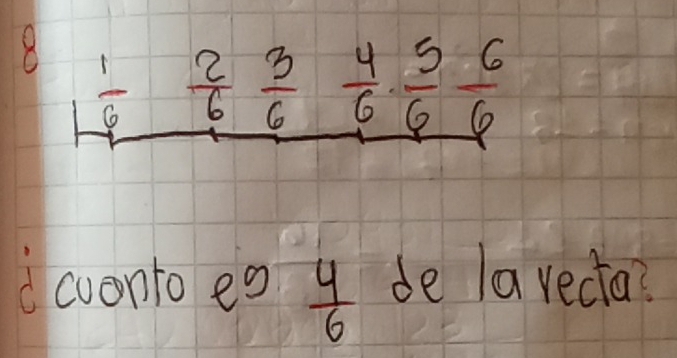 8
1/6 2/6 3/6 4/6 5/6 6/6
¿cuonto es 4/6 de la recta?